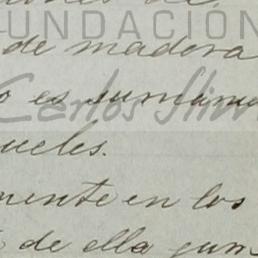 FUNDACIÓN
de madera
o es sumam
Carlos Slim
ueles.
mente en los
de ella jum